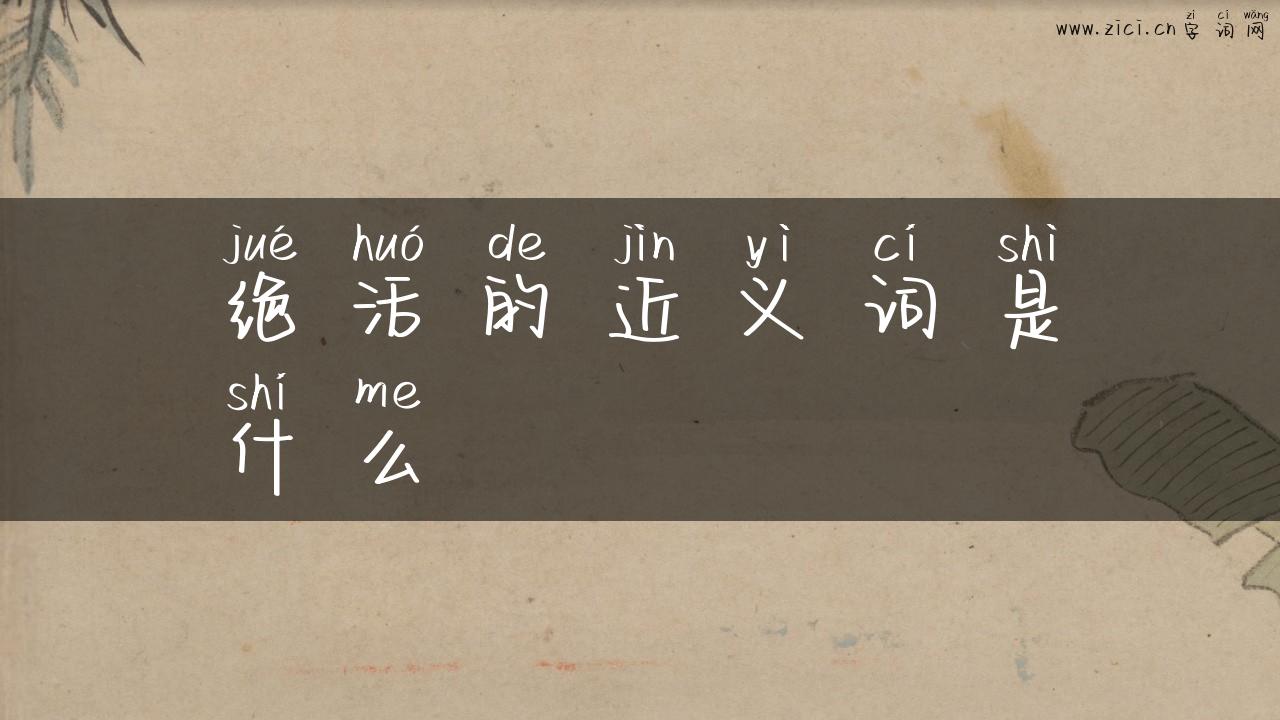 zì cí wǎng
www.zici.cn 字词网
jué huó de jìn yì cí shì
绝活的近义词是
shí me
什么